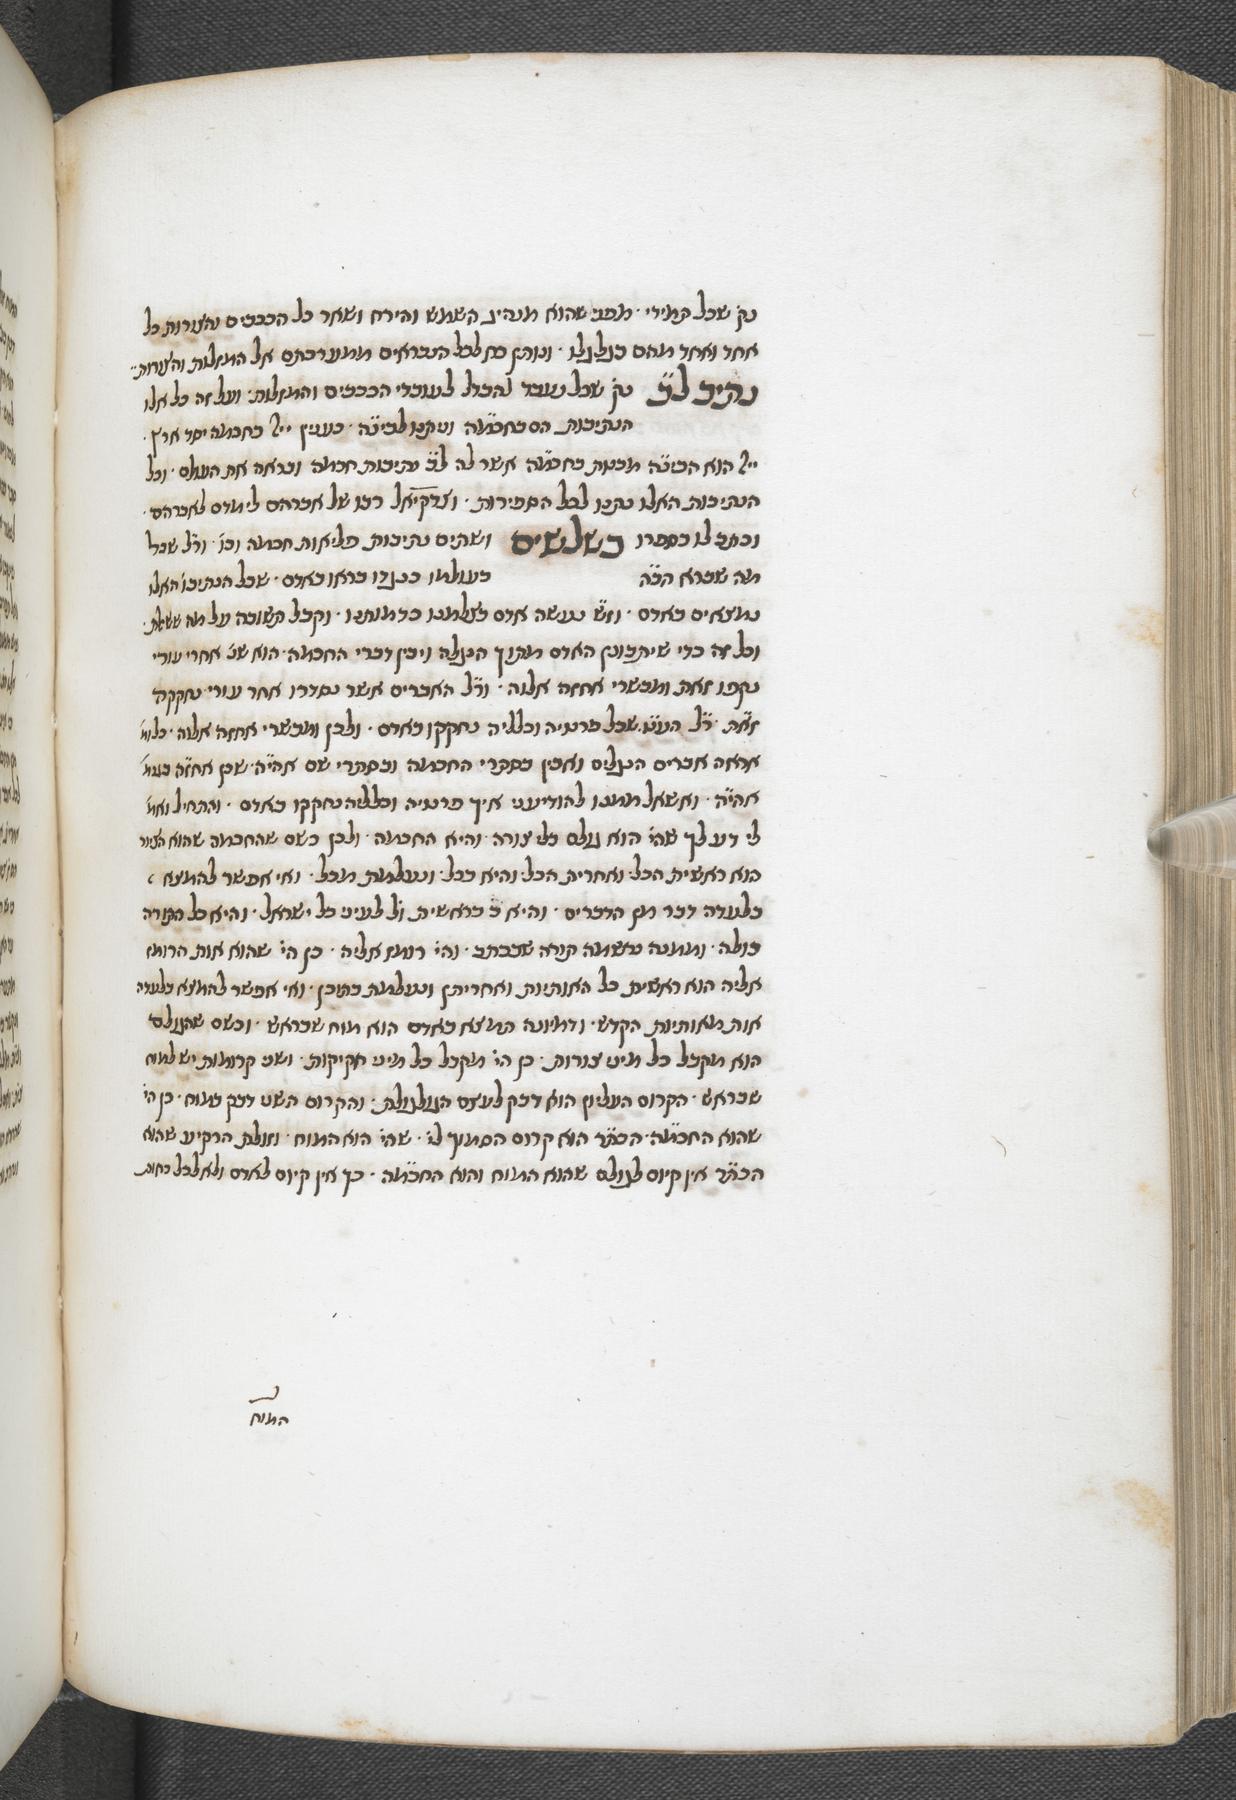 נק' שכל תמידי · מפני שהוא מנהיג השמש והירח ושאר כל הככבים והצורות כל
אחד ואחד מהם בגלגלו · ונותן כח לכל הנבראים ממערכתם אל המזלות והצורות
נתיב ל"ב נק' שכל נעבד להבדל לעובדי הככבים והמזלות · ועל זה כל אלו
הנתיבות הם בחכמה וניתנו לבינה · כענין ייי בחכמה יסד ארץ ·
ייי הוא הבינה מבטת בחכמה אשר לה ל"ב נתיבות חכמה ובראה את העולם · וכל
הנתיבות האלו נתנו לכל הספירות · וצדקיאל רבו של אברהם לימדם לאברהם ·
וכתב לו בספרו בשלשים ושתים נתיבות פליאות חכמה וכו' · ור"ל שכל
מה שברא הב"ה בעולמו כנגדו בראו באדם · שכל הנתיבו' האלו
נמצאים באדם · וז"ש נעשה אדם בצלמנו כדמותנו · וקבל תשובה על מה ששאלת ·
וכל זה כדי שיתבונן האדם מתוך הנגלה ויבין דברי החכמה · הוא שנ' אחרי עורי
נקפו זאת ומבשרי אחזה אלוה · ור"ל האברים אשר נסדרו אחר עורי נחקקה
זאת · ר"ל שכל פרטיה וכלליה נחקקו באדם · ולכן ומבשרי אחזה אלוה · כלומ'
אראה אברים הנגלים ואבין בסתרי החכמה ובסתרי שם אהי"ה · שכן אחזה
אהי"ה · ואשאל ממנו להודיעני איך פרטיה וכלליה נחקקו באדם · והתחיל ואמ'
לי דע לך שהי' הוא גולם בלי צורה · והיא החכמה · ולכן כשם שהחכמה שהוא היוד
הוא ראשית הכל · ואחרית הכל · והיא בכל · ונעלמת מכל · ואי אפשר להמצא
בלעדה דבר מן הדברים · והיא ב' בראשית ול' לעיני כל ישראל · והיא כל התורה
כולה · וממנה נרשמה תורה שבכתב · והי' רומז אליה · כן הי' שהוא אות הרומז
אליה הוא ראשית כל האותיות ואחריתן ונעלמת בתוכן · ואי אפשר להמצא בלעדה
אות מאותיות הקדש · ודמיונה המצא באדם הוא מוח שבראש · וכשם שהגולם
הוא מקבל כל מיני צורות · כן הי' מקבל כל מיני חקיקות · ושני קרומות יש למוח
שבראש · הקרום העליון הוא דבק לעצם הגולגולת · והקרום השני דבק במוח · כן הי'
שהוא החכמה · הכתר הוא קרום הסמוך לו · שהי' הוא המוח · וזולת הרקיע שהוא
הכתר אין קיום לגולם שהוא המוח והוא החכמה · כך אין קיום לאדם ולא לכל כחות
המוח